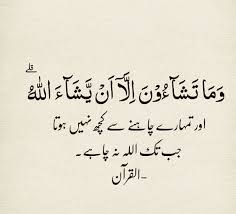 وَمَا تَشَآءُوْنَ اِلَّاۤ اَنْ یَّشَآءَ اللّٰهُ ؕ قلے
اور تمہارے چاہنے سے کچھ نہیں ہوتا
جب تک اللہ نہ چاہے۔
-القرآن